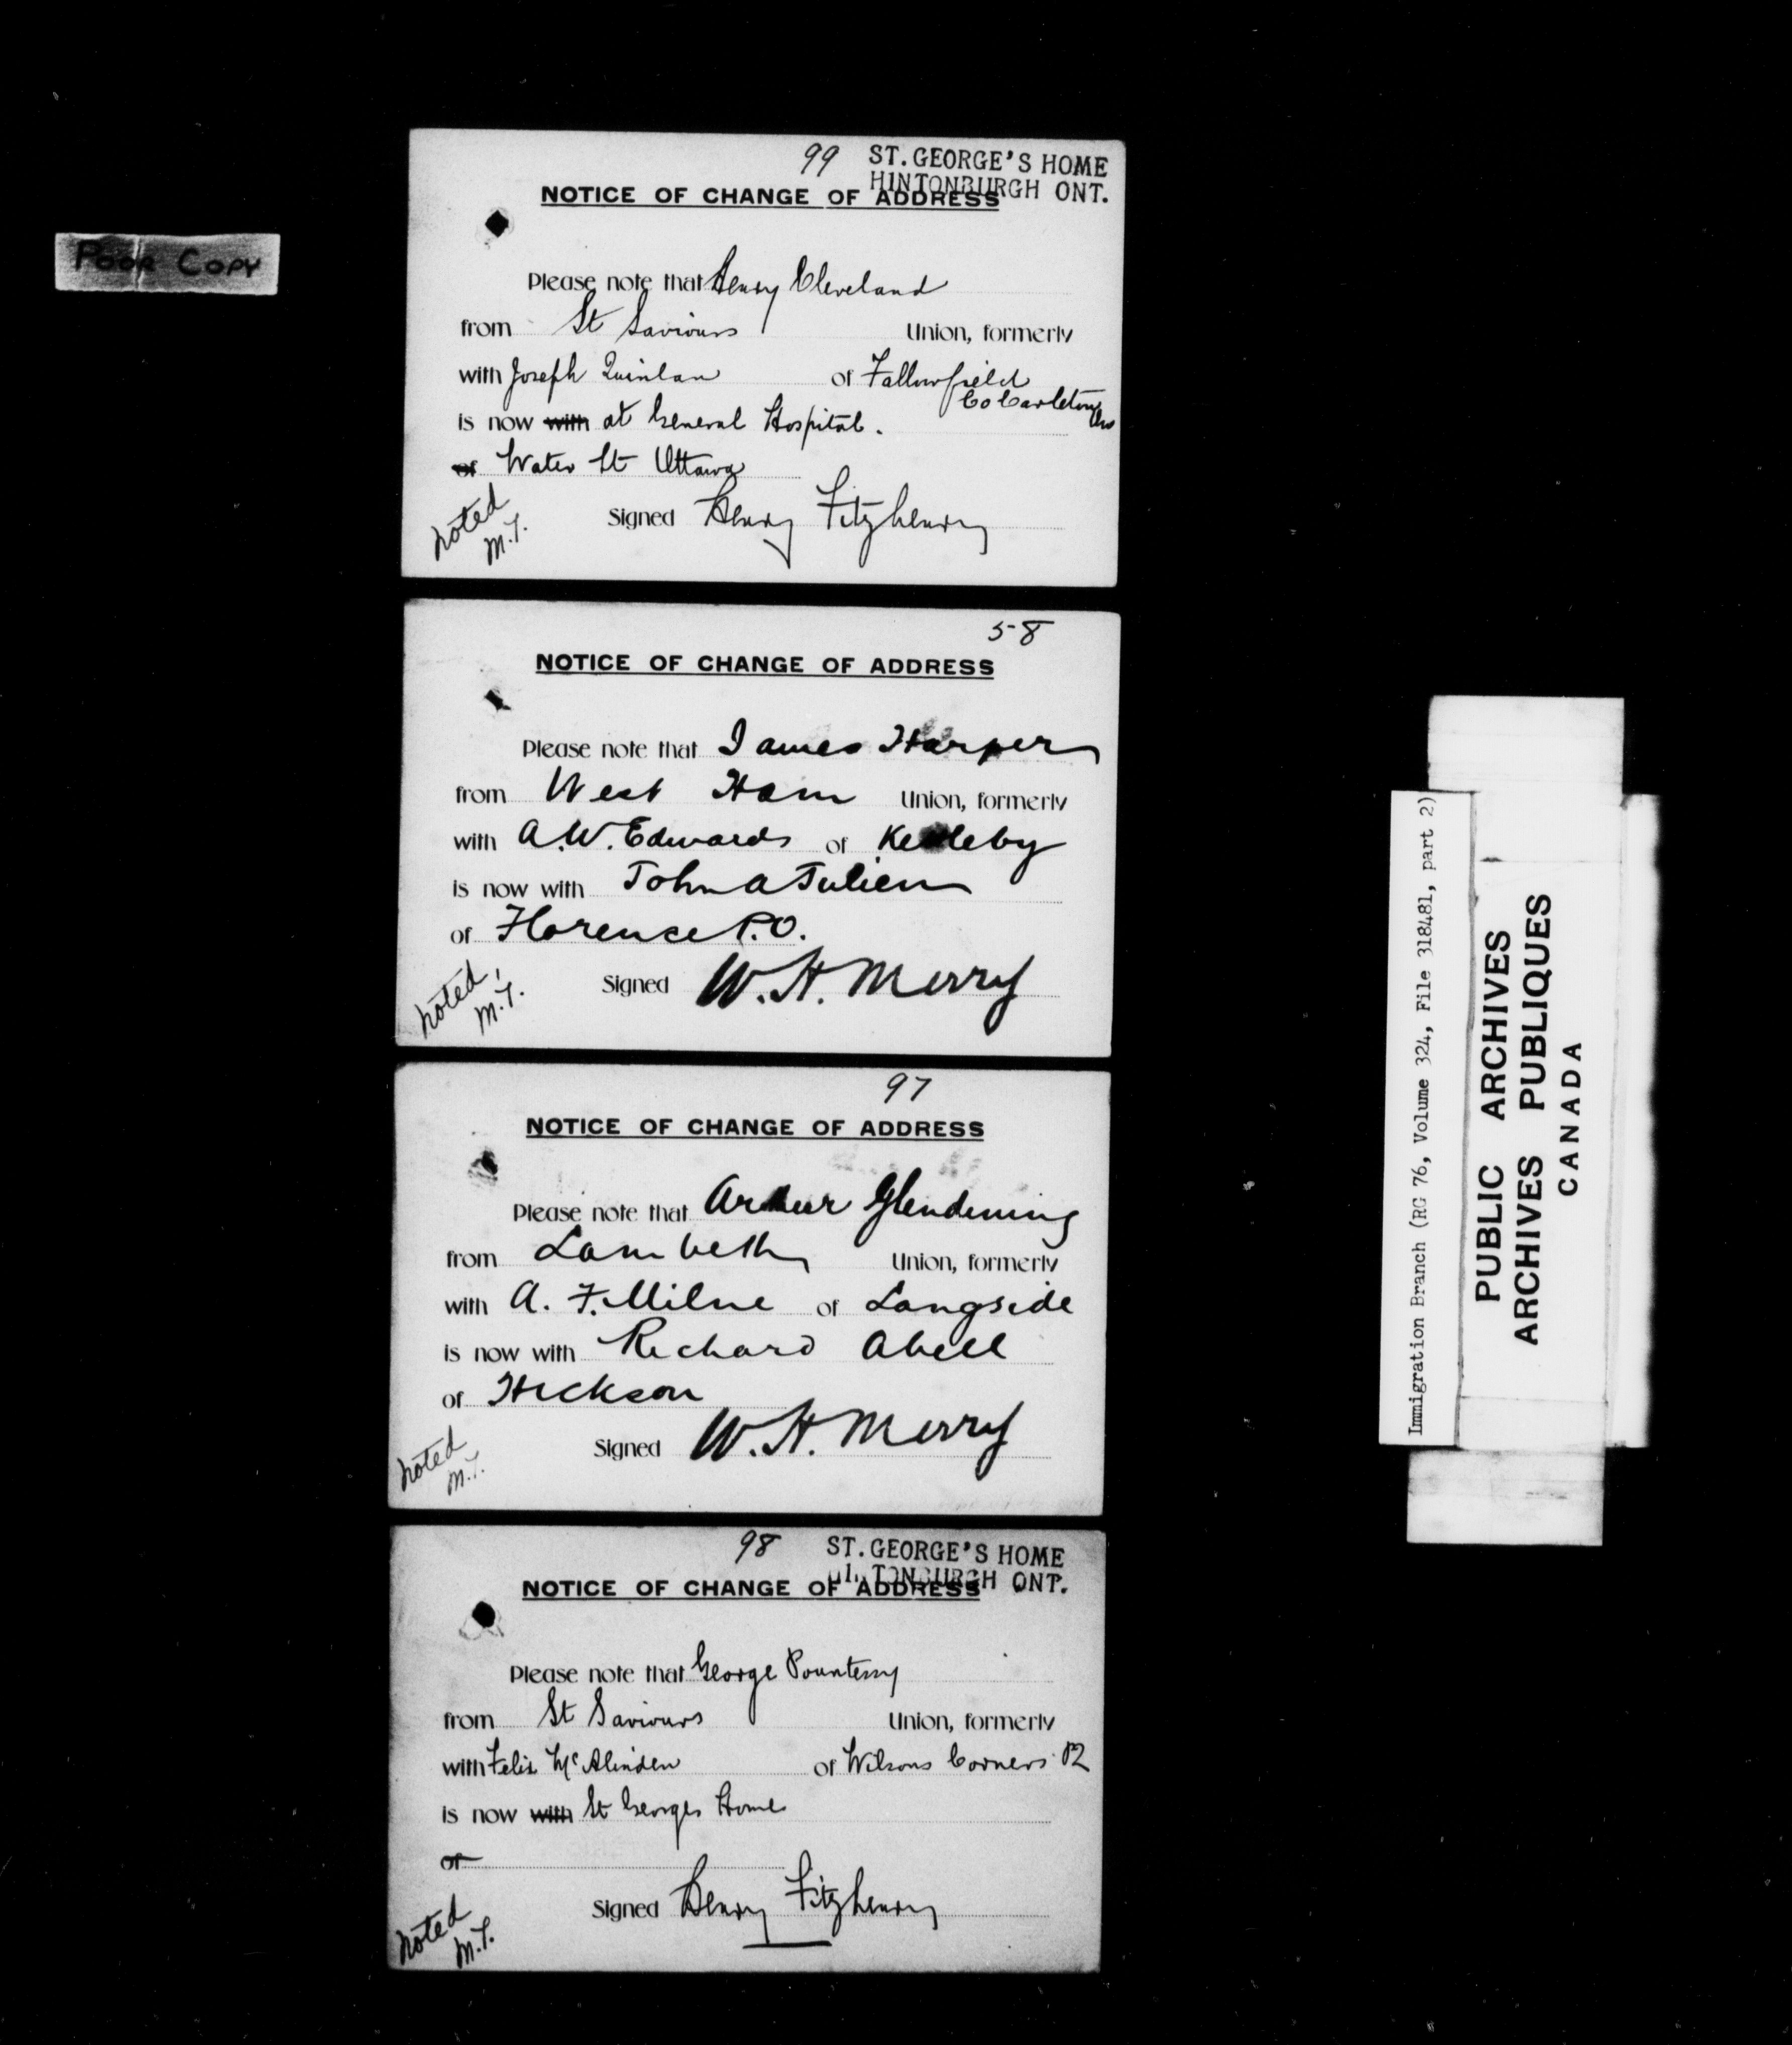 Poor Copy
99 ST. GEORGE'S HOME
HINTONBURGH ONT.
NOTICE OF CHANGE OF ADDRESS
Please note that Henry Cleveland
from St Saviours Union, formerly
with Joseph Quinlan of Fallowfield
Co Carleton
is now with at General Hospital.
of Water St Ottawa
Signed Henry Fitzhenry
Noted
M.T.
58
NOTICE OF CHANGE OF ADDRESS
Please note that James Harper
from West Ham Union, formerly
with A.W. Edwards of
is now with John A Julien
of Florence P.O.
Signed W. H. Merry
Noted
M.T.
97
NOTICE OF CHANGE OF ADDRESS
Please note that Arthur Glendening
from Lambeth Union, formerly
with A. F. Milne of Langside
is now with Richard Abell
of Hickson
Signed W. H. Merry
Noted
M.T.
98 ST. GEORGE'S HOME
HINTONBURGH ONT.
NOTICE OF CHANGE OF ADDRESS
Please note that George
from St Saviours Union, formerly
with Felix McAlinden of Wilsons Corners PQ
is now with St Georges Home
of
Signed Henry Fitzhenry
Noted
M.T.
Immigration Branch (RG 76, Volume 324, File 318481, part 2)
PUBLIC ARCHIVES
ARCHIVES PUBLIQUES
CANADA